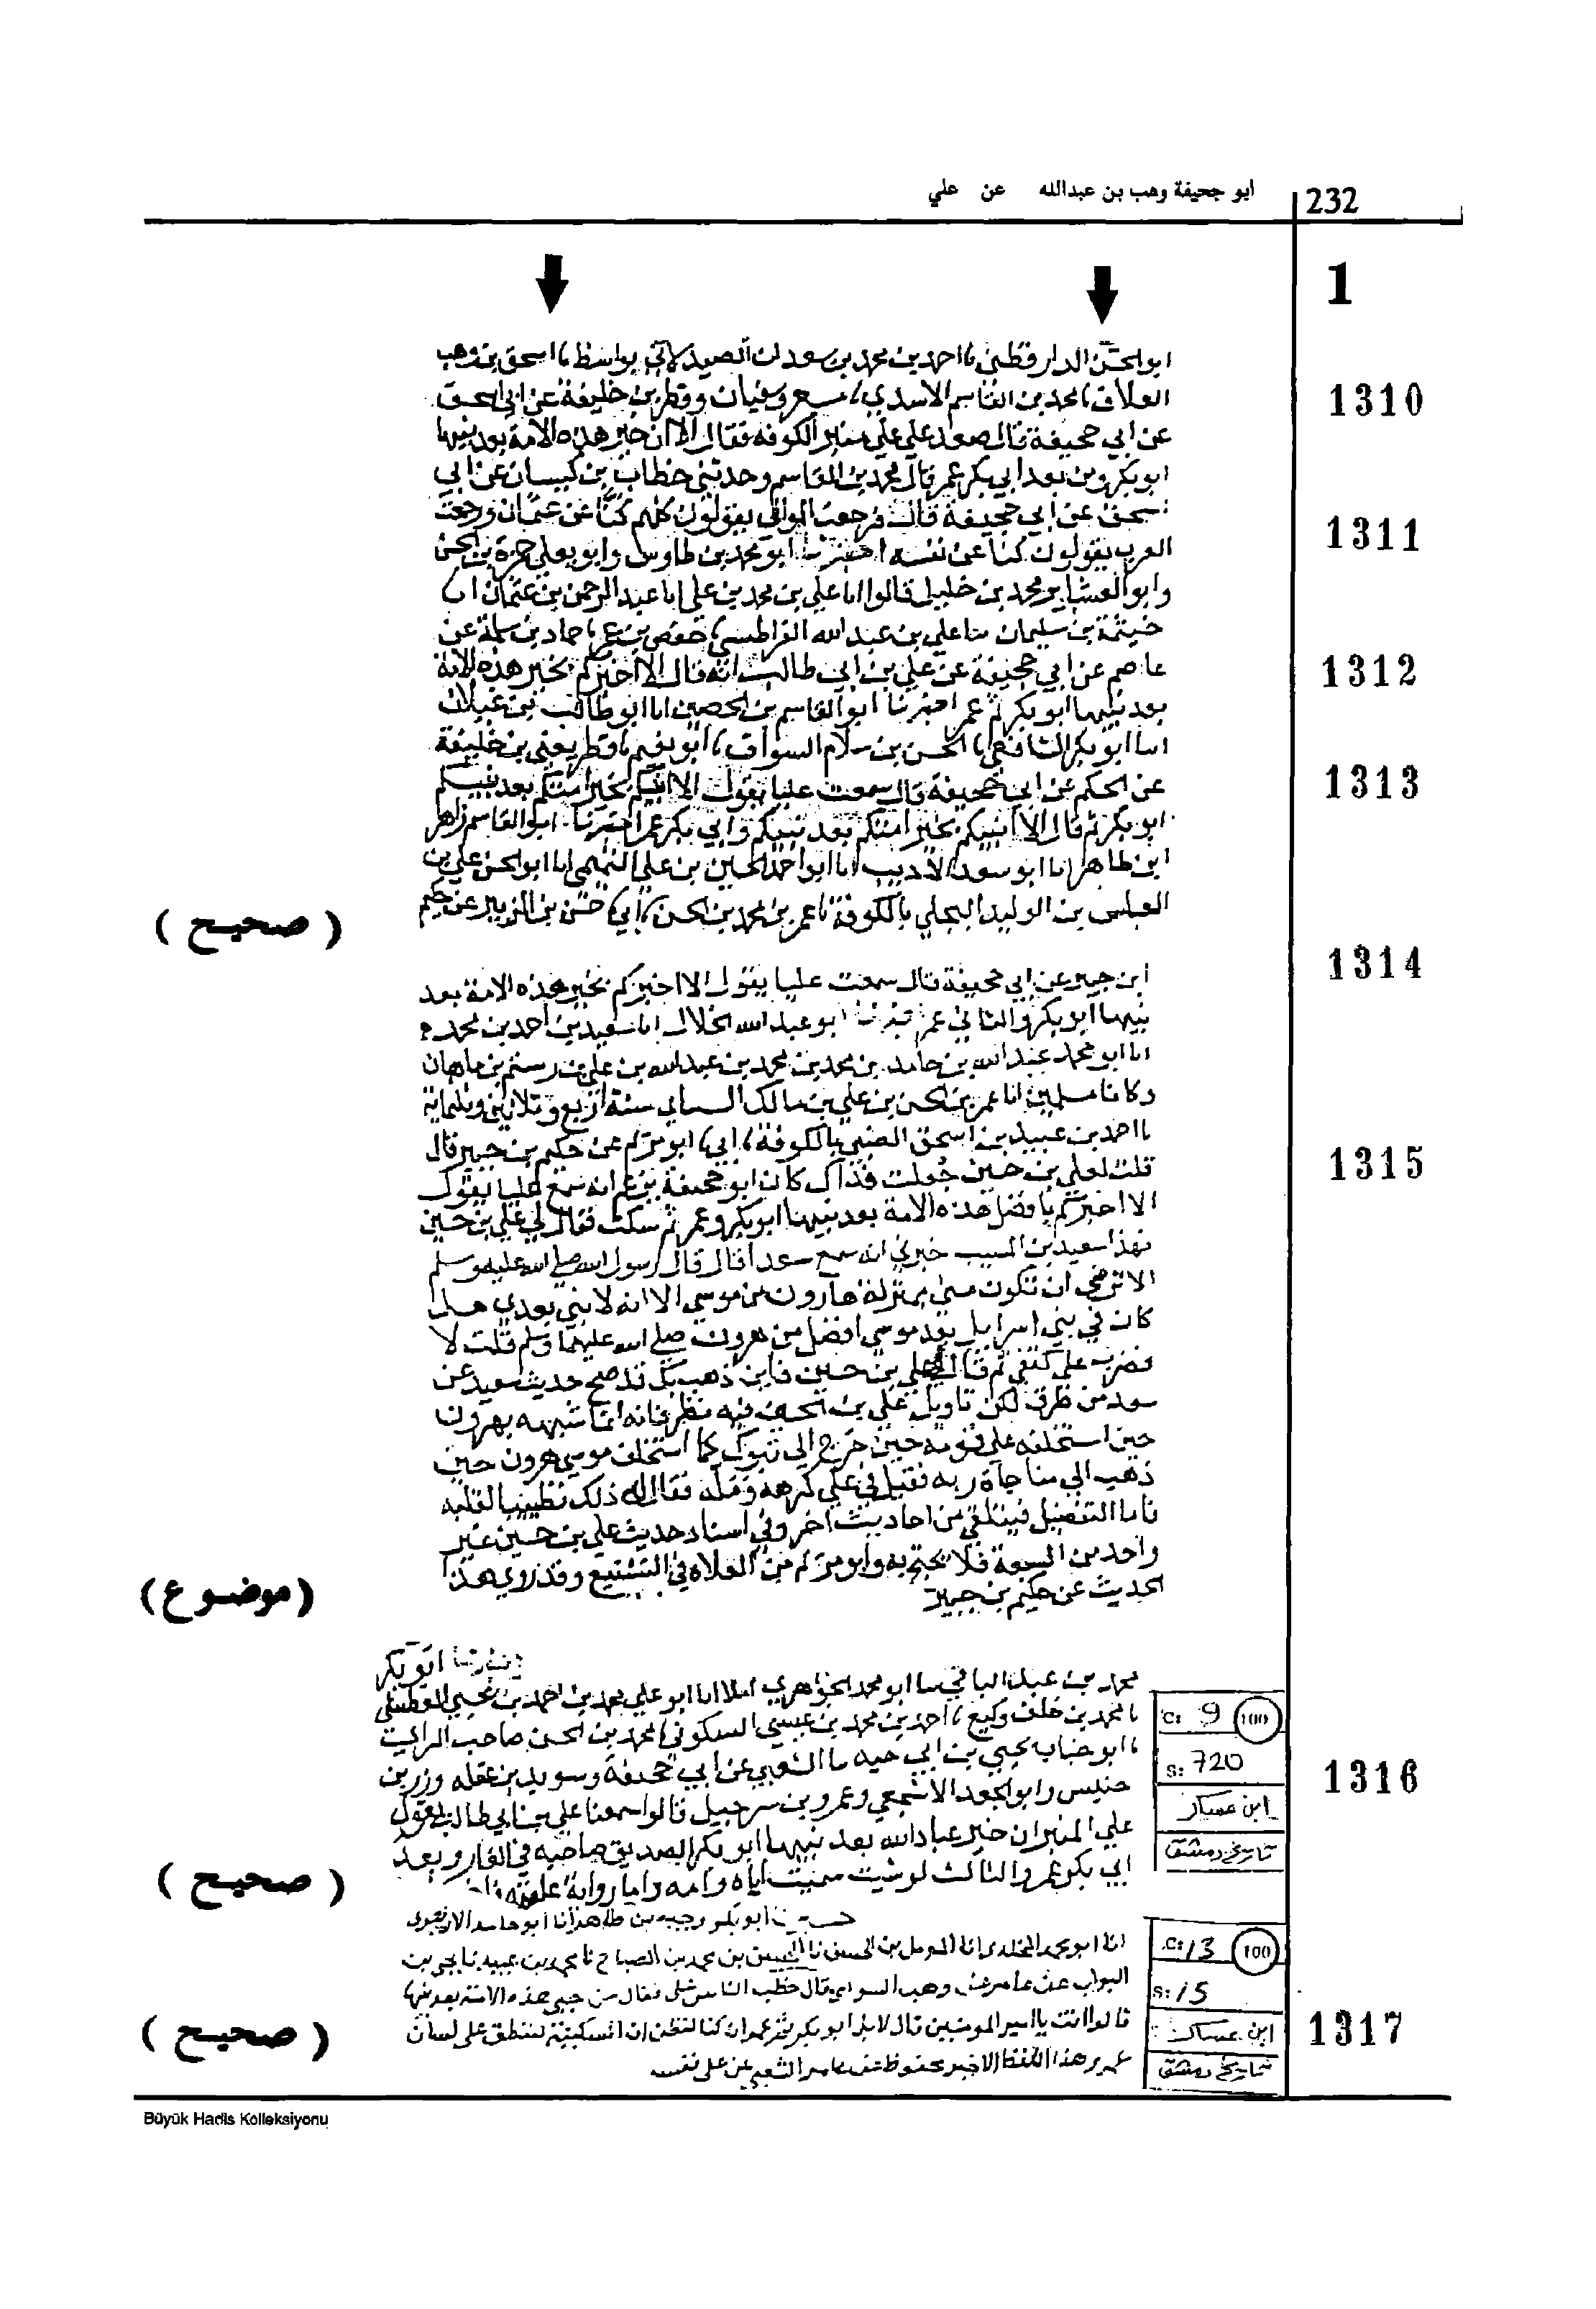 232
ابو جحيفة وهب بن عبدالله عن علي
1
ابو الحسن الدارقطني نا احمد بن محمد بن سعدان الصيدلاني بواسط نا اسحق بن وهب
1310
العلاف نا محمد بن القاسم الاسدي نا مسعر وسفيان وفطر بن خليفة عن ابي اسحق
عن ابي جحيفة قال صعد علي على منبر الكوفه فقال الا ان خير هذه الامة بعد نبيها
ابو بكر ومن بعد ابي بكر عمر قال محمد بن القاسم وحدثني خطاب بن كيسان عن ابي
1311
اسحق عن ابي جحيفة قال فرجعت الموالي يقولون كلهم كنا عن عثمان ورجعت
العرب يقولون كنا عن نفسه اخبرنا ابو محمد بن طاوس وابو يعلى حمزة بن الحسن
وابو العشاير محمد بن خليل قالوا انا علي بن محمد بن علي انا عبد الرحمن بن عثمان انا
خيثمة بن سليمان نا علي بن عبد الله القراطيسي نا حفص بن عمر نا حماد بن سلمة عن
1312
عاصم عن ابي جحيفة عن علي بن ابي طالب انه قال الا اخبركم بخير هذه الامة
بعد نبيها ابو بكر ثم عمر اخبرنا ابو القاسم بن الحصين انا ابو طالب بن غيلان
انا ابو بكر الشافعي نا الحسن بن سلام السواق نا ابو نعيم نا فطر يعني بن خليفة
1313
عن الحكم عن ابي جحيفة قال سمعت عليا يقول الا انبيكم بخير امتكم بعد نبيكم
ابو بكر ثم قال الا انبيكم بخير امتكم بعد نبيكم وابي بكر عمر اخبرنا ابو القاسم زاهر
ابن طاهر انا ابو سعد الاديب انا ابو احمد الحسين بن علي التميمي انا ابو الحسن علي بن
العباس بن الوليد البجلي بالكوفة نا عمر بن محمد بن الحسن نا ابي نا حسن بن الزبير عن حكيم
( صحيح )
1314
ابن جبير عن ابي جحيفة قال سمعت عليا يقول الا اخبركم بخير هذه الامة بعد
نبيها ابو بكر والثاني عمر اخبرنا ابو عبد الله الخلال انا سعيد بن احمد بن محمد
انا ابو محمد عبد الله بن حامد بن محمد بن محمد بن عبد الله بن علي بن رستم بن ماهان
وكانا مسلمين انا عمر بن الحسن بن علي بن مالك الشيباني سنة اربع وثلاثين وثلثماية
نا احمد بن عبيد بن اسحق الضبي بالكوفة نا ابي نا ابو مريم عن حكيم بن جبير قال
1315
قلت لعلي بن حسين جعلت فداك كان ابو جحيفة يزعم انه سمع عليا يقول
الا اخبركم بافضل هذه الامة بعد نبيها ابو بكر وعمر ثم سكت فقال لي علي بن حسين
فهذا سعيد بن المسيب خبرني انه سمع سعدا قال قال رسول الله صلى الله عليه وسلم
الا ترضى ان تكون مني بمنزلة هارون من موسى الا انه لا نبي بعدي هل
كان في بني اسرايل بعد موسى افضل من هرون صلى الله عليهما وسلم قلت لا
فضرب على كتفي ثم قال لي علي بن حسين فاين ذهب بك قد صح حديث سعيد عن
سعد من طرق لكن تاويل علي بن الحسين فيه نظر فانه انما شبهه بهرون
حين استخلفه على قومه حين خرج الى تبوك كما استخلف موسى هرون حين
ذهب الى مناجاة ربه فقيل في علي كرهه وقلاه فقال له ذلك تطييبا لقلبه
فاما التفضيل فيتلقى من احاديث اخر وفي اسناد حديث علي بن حسين غير
واحد من الشيعة فلا يحتج به وابو مريم من الغلاة في التشيع وقد روي هذا
(موضوع)
الحديث عن حكيم بن جبير
اخبرنا ابو بكر
محمد بن عبد الباقي نا ابو محمد الجوهري املا انا ابو علي محمد بن احمد بن يحيى العطشي
نا محمد بن خلف وكيع نا احمد بن محمد بن عيسى السكوني نا محمد بن الحسن صاحب الراي
1316
نا ابو جناب يحيى بن ابي حيه نا الشعبي عن ابي جحيفة وسويد بن غفله وزر بن
حبيش وابو الجعد الاشجعي وعمرو بن سرحبيل قالوا سمعنا علي بن ابي طالب يقول
على المنبر ان خير عباد الله بعد نبيها ابو بكر الصديق صاحبه في الغار وبعد
( صحيح )
ابي بكر عمر والثالث لو شيت سميت اياه وامه واما رواية علقمة
C: 9 100
S: 720
ابن عساكر
تاريخ دمشق
ابو بكر وجيه بن طاهر انا ابو حامد الازهري
انا ابو محمد المخلدي انا المومل بن الحسن نا الحسن بن محمد بن الصباح نا محمد بن عبيد نا يحيى بن
1317
البواب عن عامر عن وهب السواي قال خطب الناس علي فقال من خير هذه الامة بعد نبيها
( صحيح )
قالوا انت يا امير المومنين قال لا بل ابو بكر ثم عمر ان كنا لنظن ان السكينة لتنطق على لسان
عمر هذا اللفظ الاخير محفوظ عن عامر الشعبي عن علي نفسه
C: 13 100
S: 15
ابن عساكر
تاريخ دمشق
Büyük Hadis Kolleksiyonu